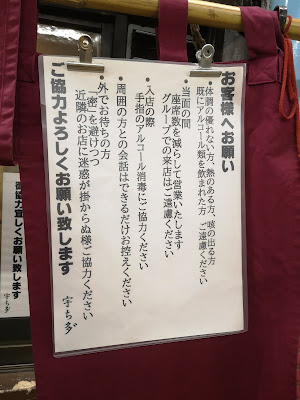 お客様へお願い
・体調の優れない方、熱のある方、咳の出る方
既にアルコール類を飲まれた方 ご遠慮ください
・当面の間
座席数を減らして営業いたします
グループでの来店はご遠慮ください
・入店の際
手指のアルコール消毒にご協力ください
・周囲の方との会話はできるだけお控えください
・外でお待ちの方
「密」を避けつつ
近隣のお店に迷惑が掛からぬ様ご協力ください
ご協力よろしくお願い致します
宇ち多゛
御協力宜しくお願い致します
宇ち多゛